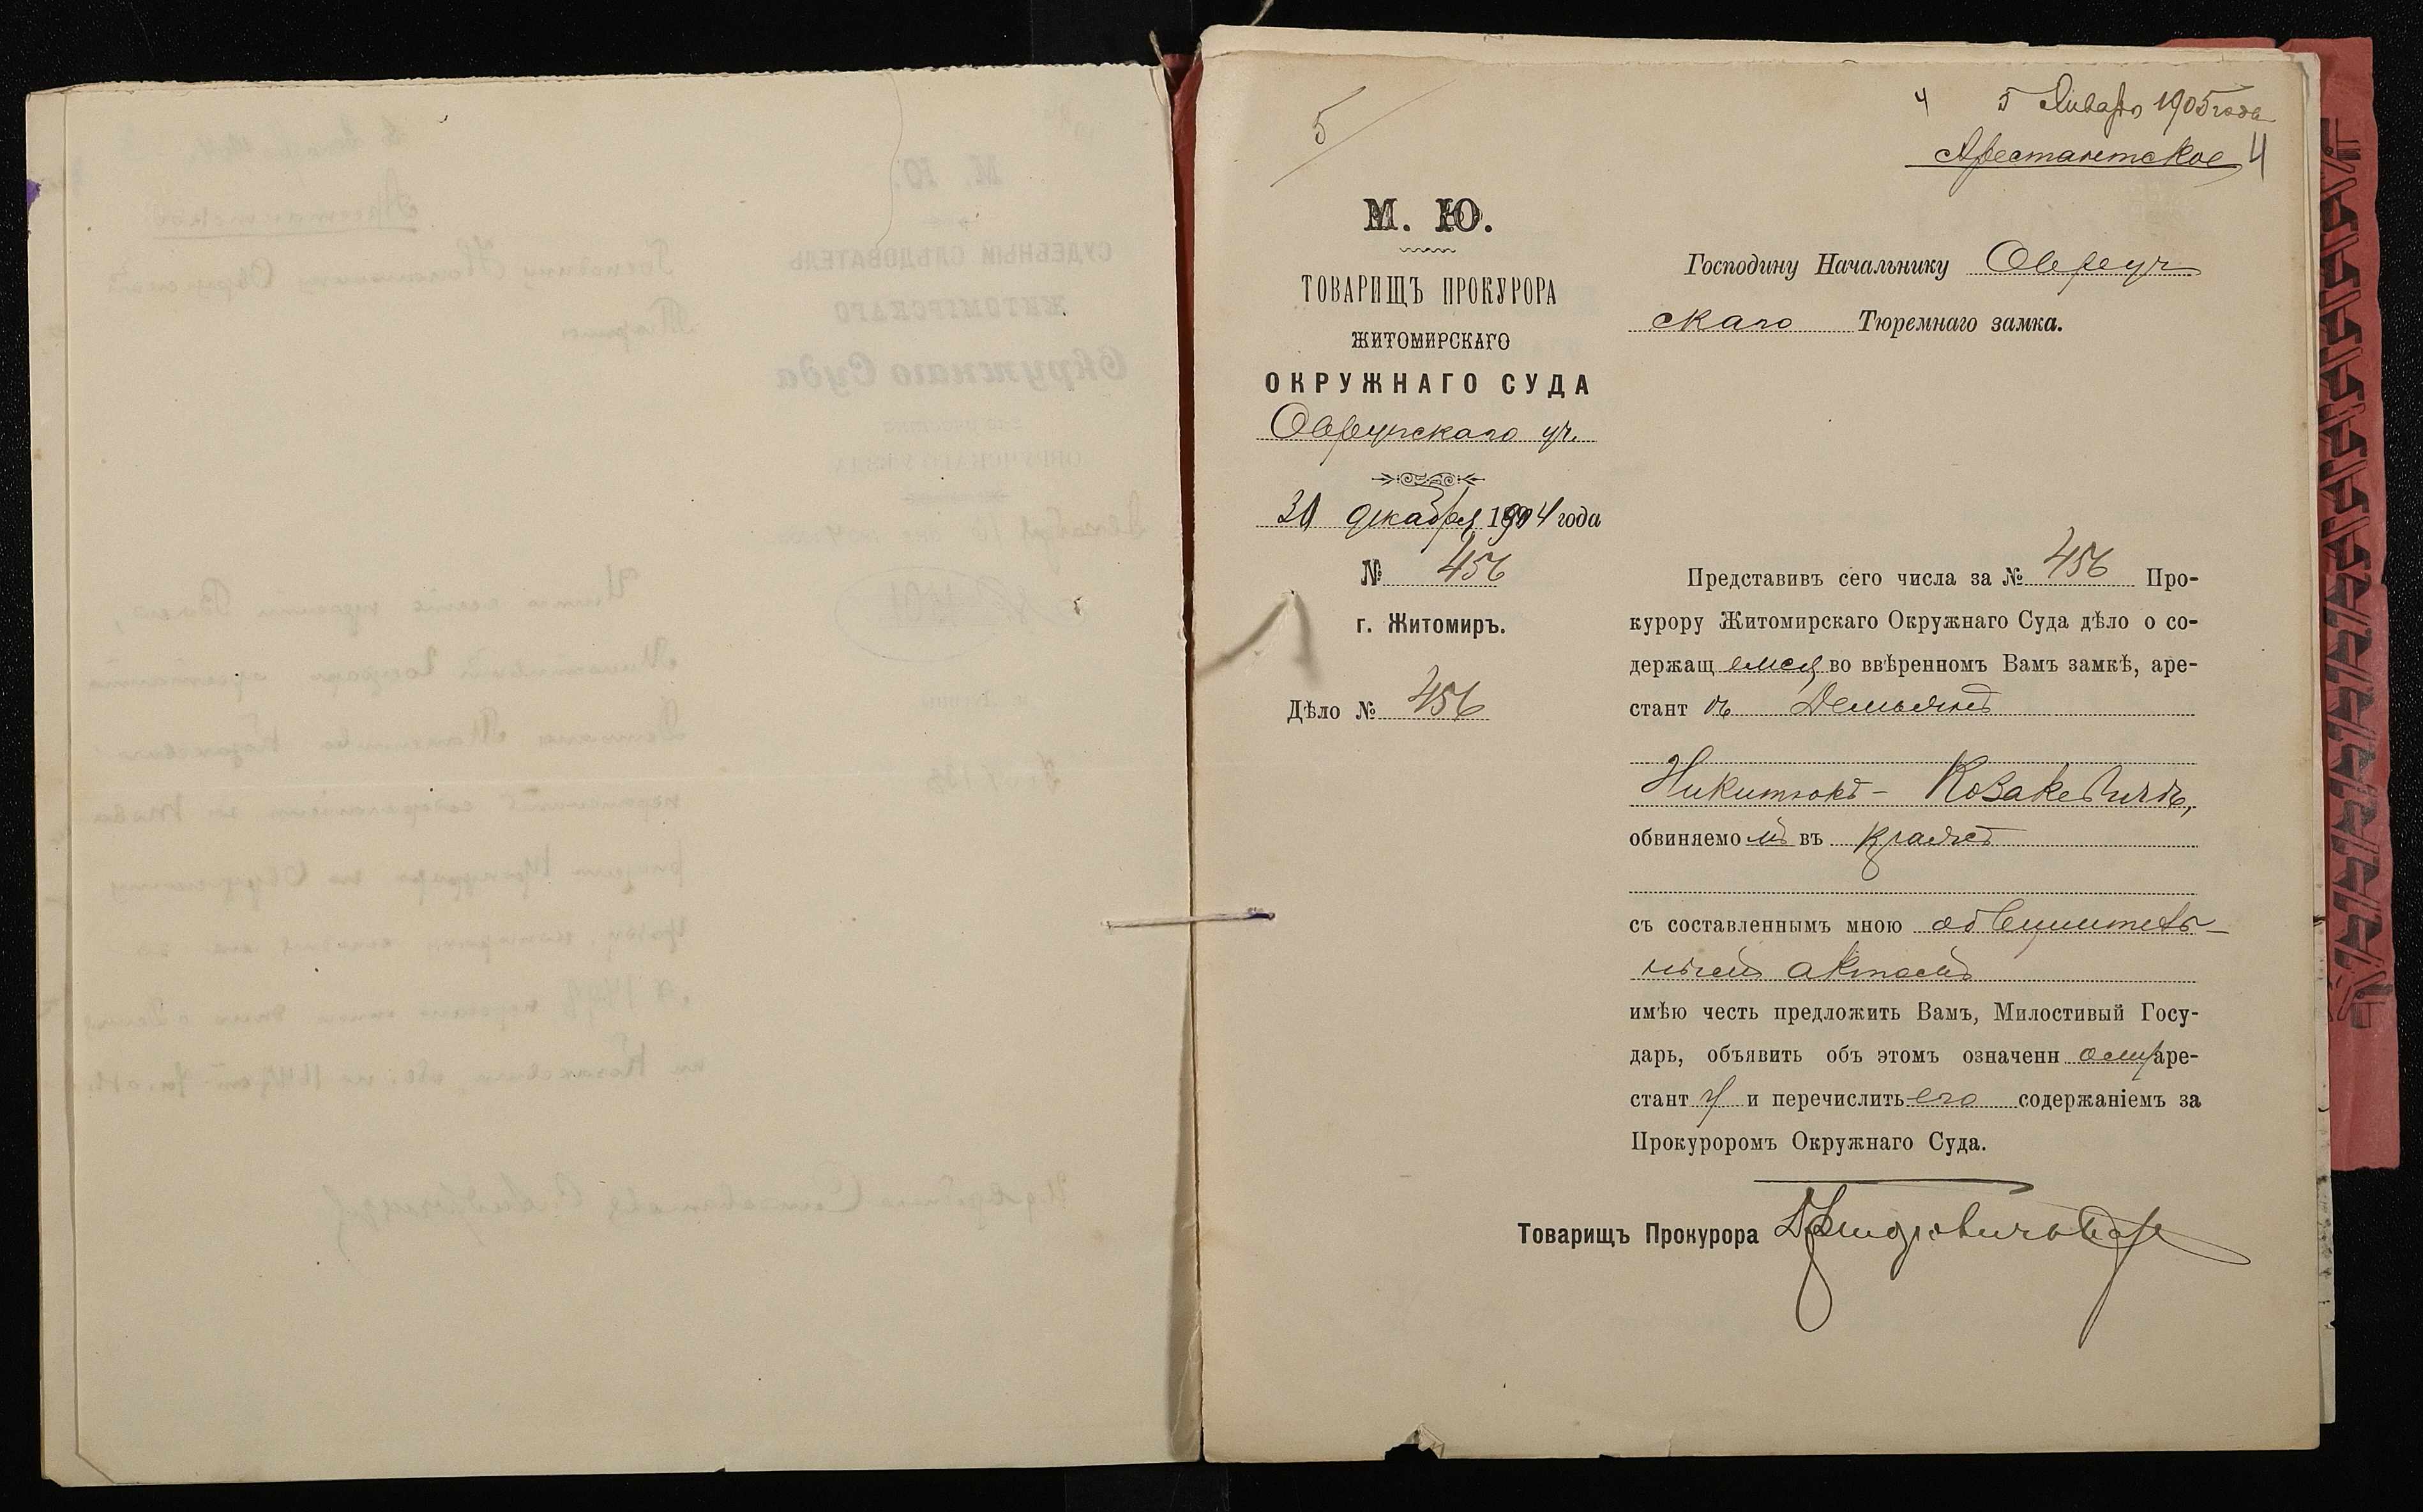 5
4 5 Января 1905 года
Арестантское 4
М. Ю.
ТОВАРИЩЪ ПРОКУРОРА
ЖИТОМИРСКАГО
ОКРУЖНАГО СУДА
Овручскаго уч.
30 декабря 1904 года
№ 456
г. Житомиръ.
Дѣло № 456
Господину Начальнику Овруч
скаго Тюремнаго замка.
Представивъ сего числа за № 456 Про-
курору Житомирскаго Окружнаго Суда дѣло о со-
держащ емся во ввѣренномъ Вамъ замкѣ, аре-
стант ѣ Демьянѣ
Никитюкѣ- Козакевичѣ,
обвиняемо мъ въ кражѣ
съ составленнымъ мною обвинитель-
нымъ актомъ
имѣю честь предложить Вамъ, Милостивый Госу-
дарь, объявить объ этомъ означенн ому аре-
стант у и перечислить его содержаніемъ за
Прокуроромъ Окружнаго Суда.
Товарищъ Прокурора